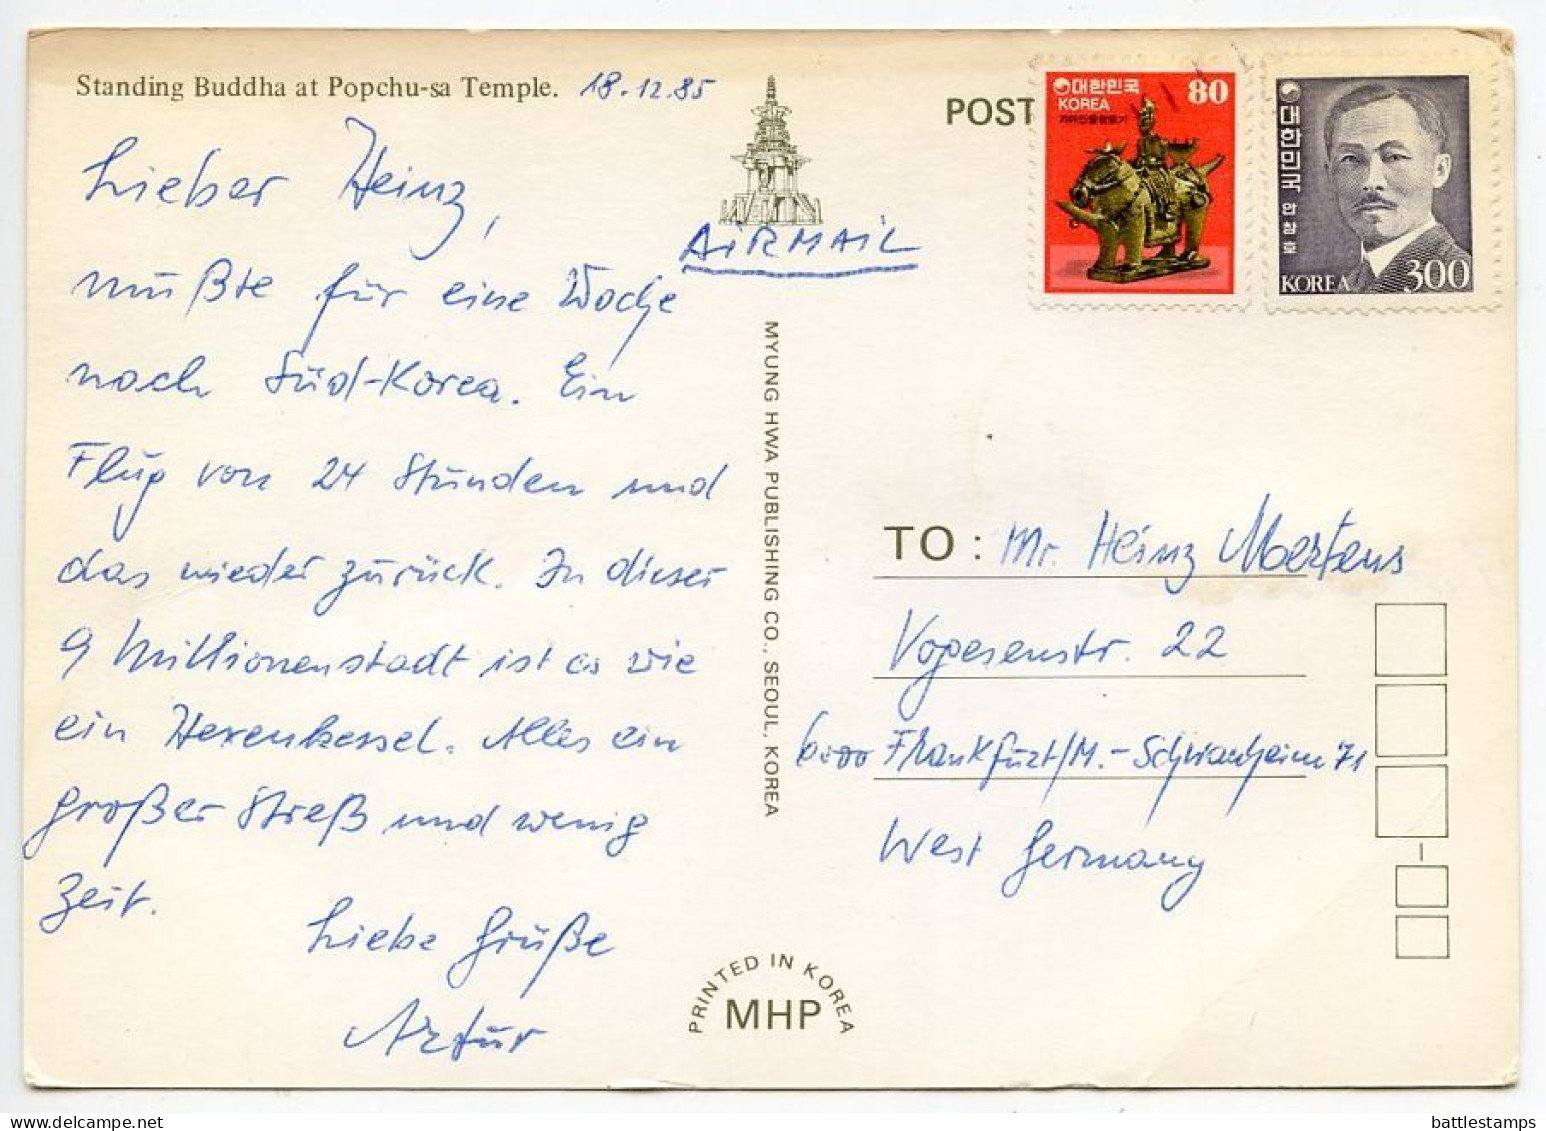 Standing Buddha at Popchu-sa Temple. 18.12.85
Lieber Heinz,
mußte für eine Woche
nach Süd-Korea. Ein
Flug von 24 Stunden und
das wieder zurück. In dieser
9 Millionenstadt ist es wie
ein Hexenkessel. Alles ein
großer Streß und wenig
Zeit.
Liebe Grüße
Artur
AIRMAIL
MYUNG HWA PUBLISHING CO., SEOUL, KOREA
PRINTED IN KOREA
MHP
POST
대한민국 80
KOREA
대한민국 안창호
KOREA 300
TO : Mr. Heinz Mertens
Vogesenstr. 22
6000 Frankfurt/M.-Schwanheim 71
West Germany
delcampe.net
battlestamps